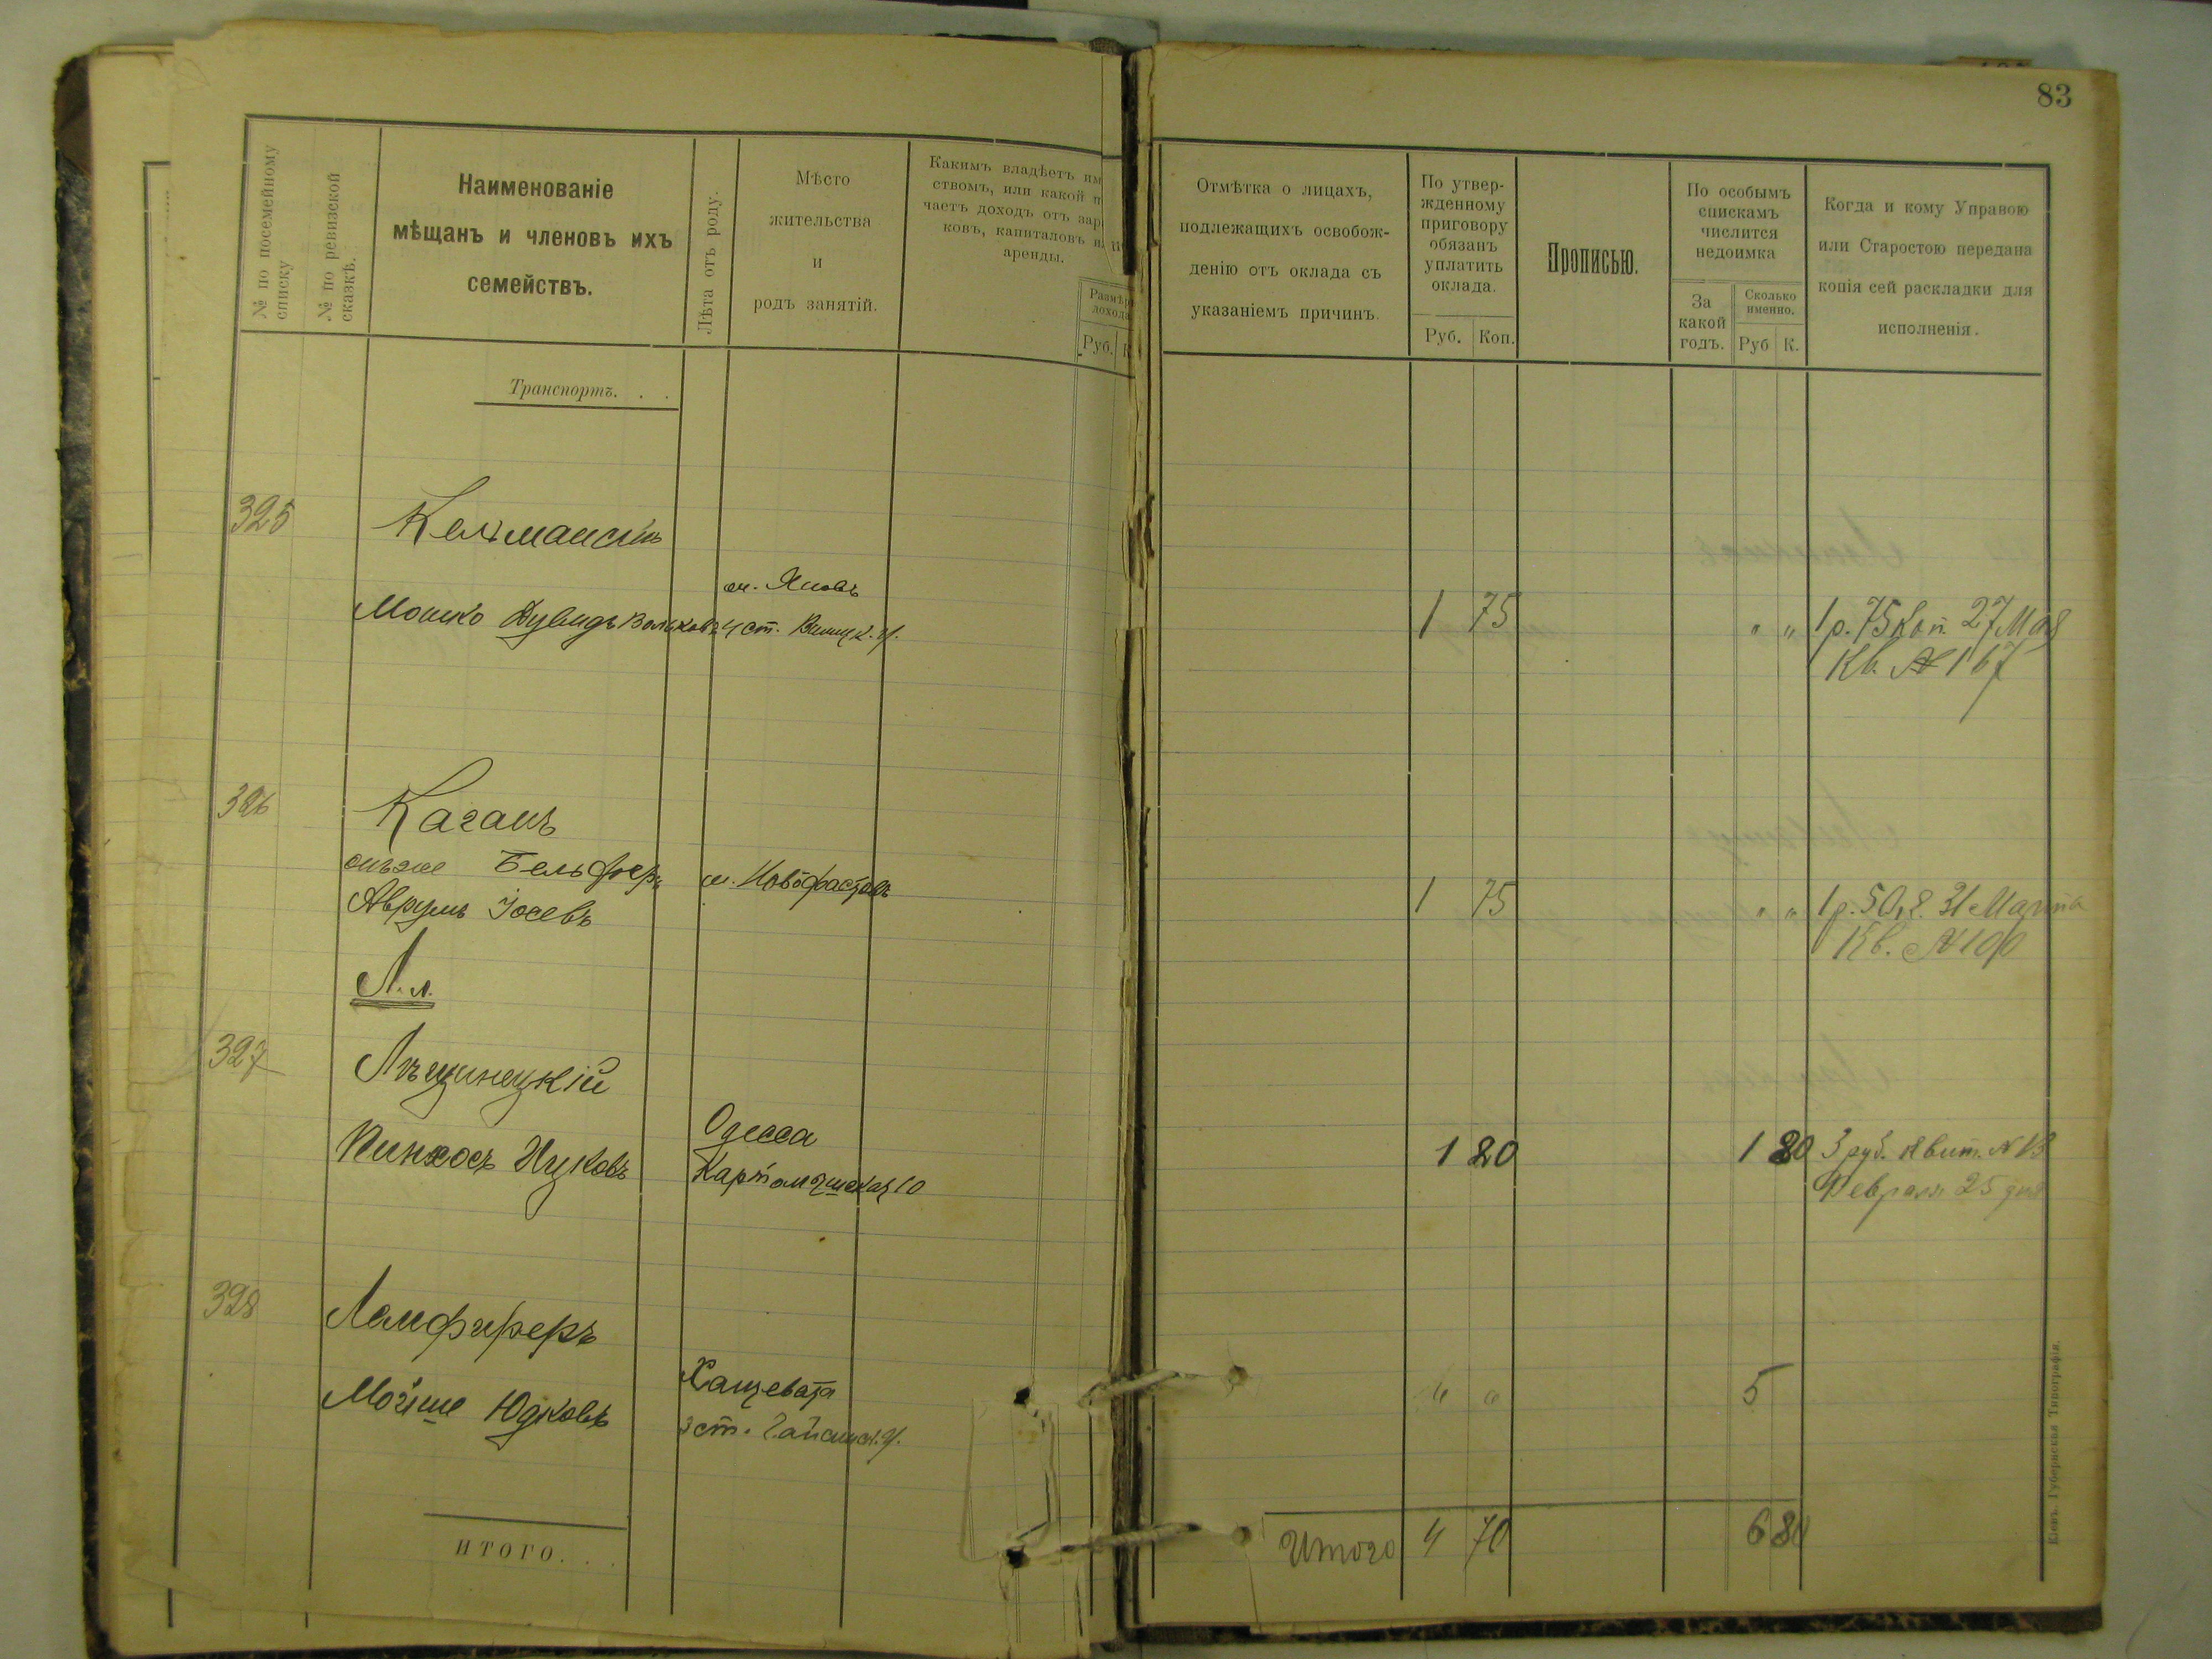 83
№ по посемейному
списку
№ по ревизской
сказкѣ.
Наименованіе
мѣщанъ и членовъ ихъ
семействъ.
Лѣта отъ роду.
Мѣсто
жительства
и
родъ занятій.
Какимъ владѣетъ им
ствомъ, или какой п
чаетъ доходъ отъ зар
ковъ, капиталовъ и
аренды.
Размѣръ
дохода
Руб.
К
Отмѣтка о лицахъ,
подлежащихъ освобож-
денію отъ оклада съ
указаніемъ причинъ.
По утвер-
жденному
приговору
обязанъ
уплатить
оклада.
Руб.
Коп.
Прописью.
По особымъ
спискамъ
числится
недоимка
За
какой
годъ.
Сколько
именно.
Руб
К.
Когда и кому Управою
или Старостою передана
копія сей раскладки для
исполненія.
Транспортъ. . .
325
Келмански
Мошко Дувидъ Вольковъ
м. Яновъ
4 ст. Винниц. у.
1 75
" "
1 р. 75 коп. 27 Мая
Кв. № 167
326
Каганъ
онъ же Бельферъ
Аврумъ Іосевъ
м. Новофастовъ
1 75
" "
1 р. 50 к. 31 Марта
Кв. № 100
Л. л.
327
Лѣщинецкій
Пинхосъ Ицковъ
Одесса
Картамышская 10
1 20
1 80
3 руб. Квит. № 13
Февраля 25 дня
328
Ламфиферъ
Мойше Юдковъ
Хащевата
3 ст. Гайсинск. у.
5
ИТОГО. . .
Итого
4 70
6 80
Кіевъ. Губернская Типографія.